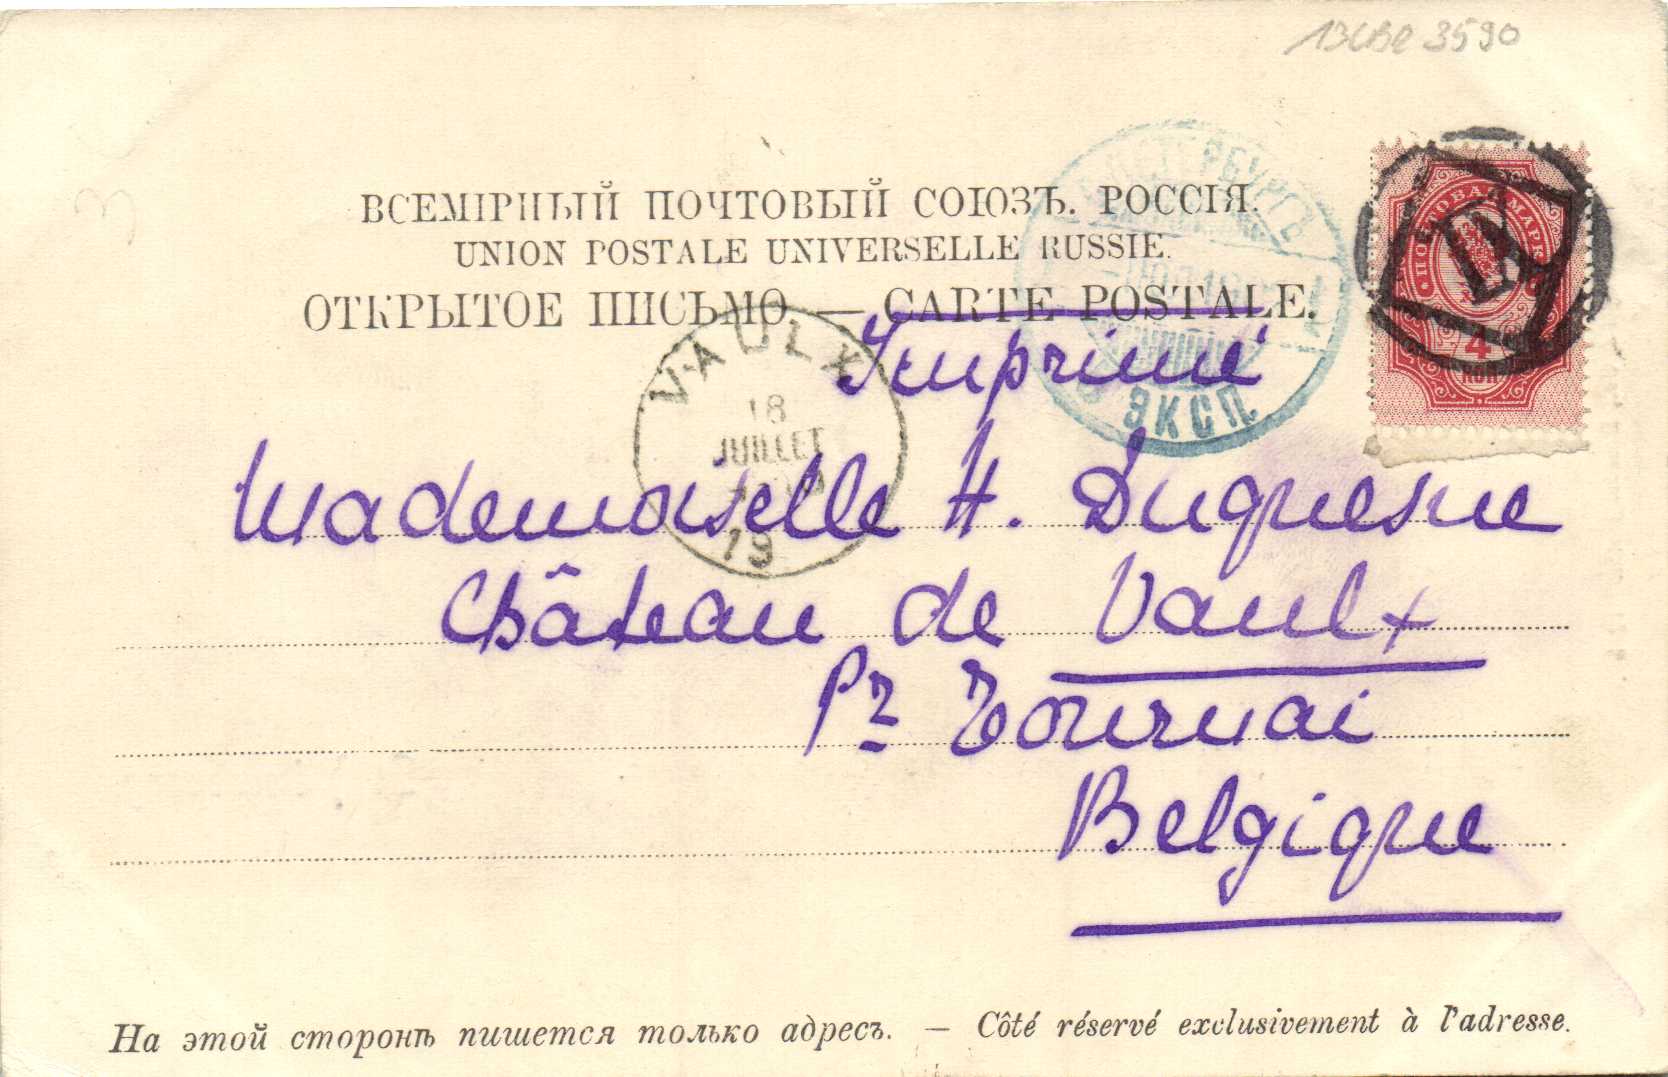 3590
ВСЕМІРНЫЙ ПОЧТОВЫЙ СОЮЗЪ. РОССІЯ.
UNION POSTALE UNIVERSELLE RUSSIE.
ОТКРЫТОЕ ПИСЬМО — CARTE POSTALE.
ПОЧТОВАЯ МАРКА
4
КОП
IX
ЭКСП.
VAULX
18
JUILLET
19
Imprimé
Mademoiselle H. Duquesne
Château de Vaulx
Pr Tournai
Belgique
На этой сторонѣ пишется только адресъ. — Côté réservé exclusivement à l'adresse.